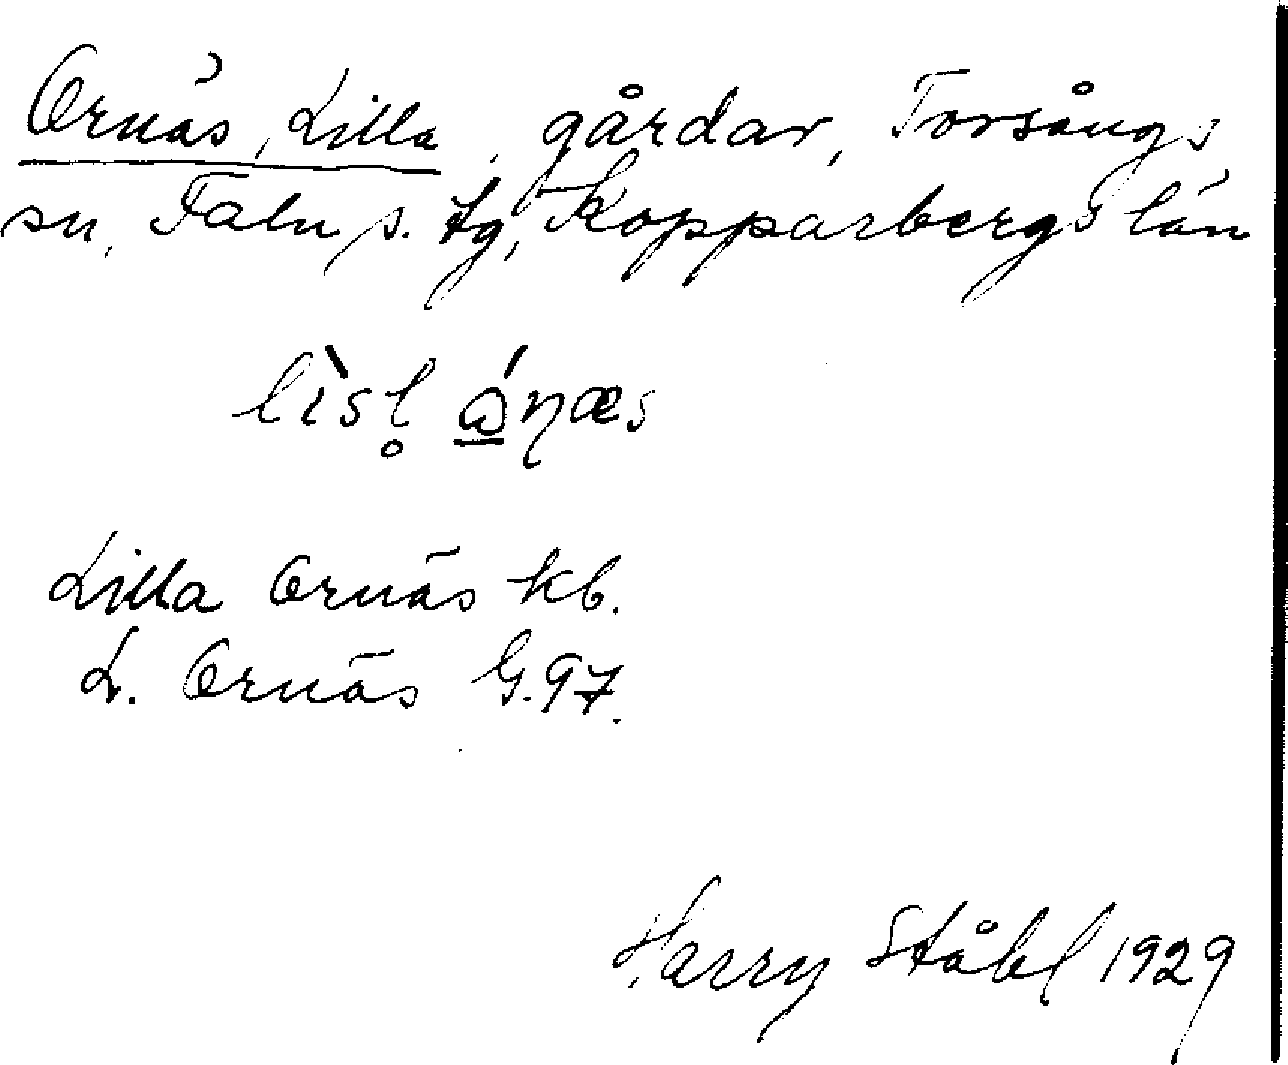 Ornäs, Lilla, gårdar, Torsångs
sn, Falu s. tg, Kopparbergs län
lìsl̥ ɷ̲́ɳæs
Lilla Ornäs kb.
L. Ornäs G.97.
Harry Ståhl 1929